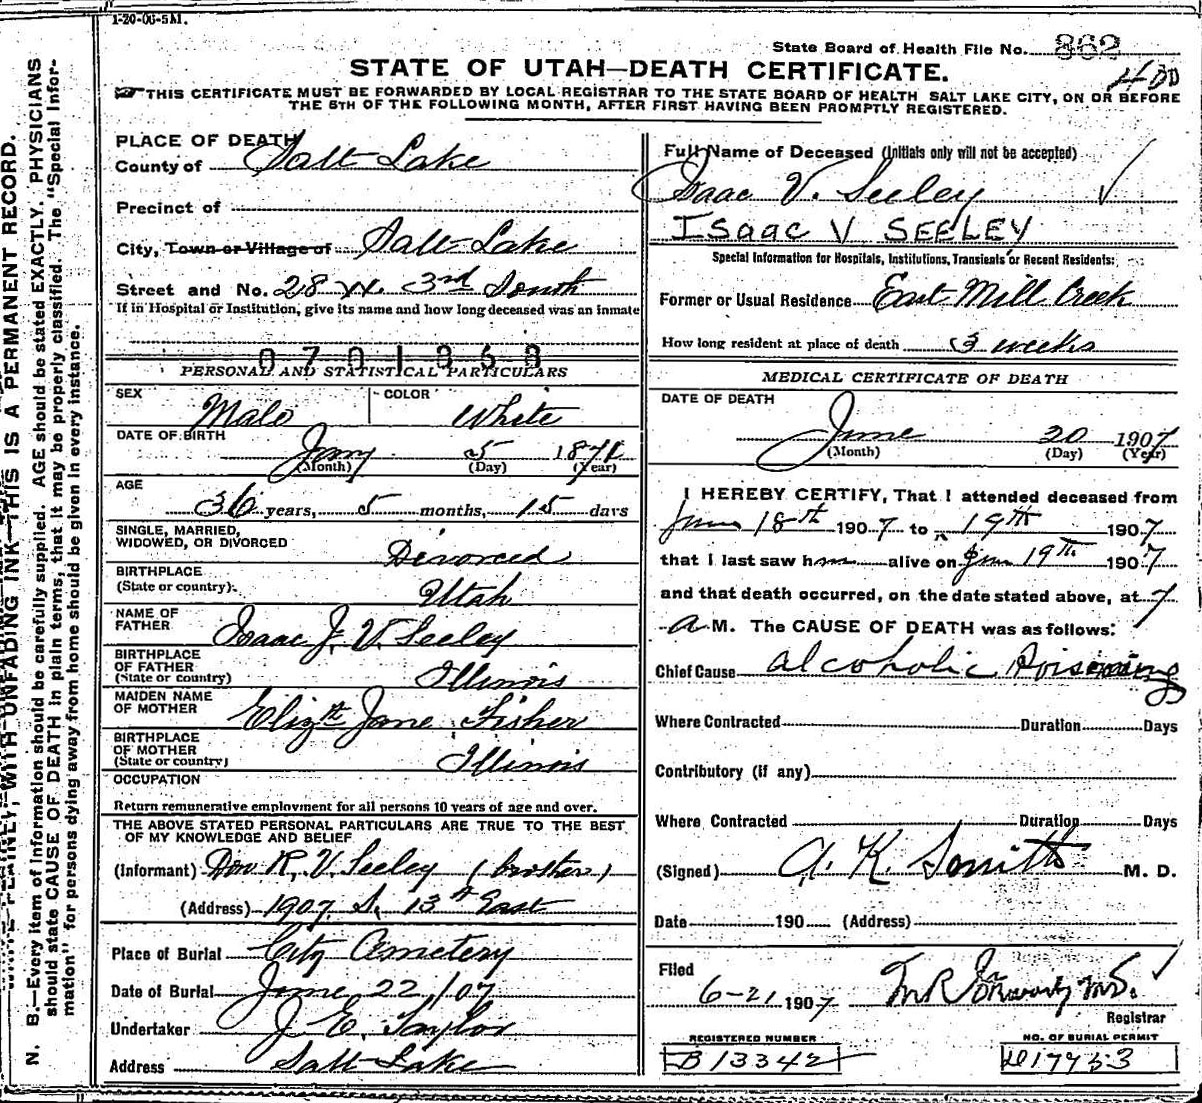 1-20-06-5M.
State Board of Health File No. 862
400
STATE OF UTAH—DEATH CERTIFICATE.
THIS CERTIFICATE MUST BE FORWARDED BY LOCAL REGISTRAR TO THE STATE BOARD OF HEALTH SALT LAKE CITY, ON OR BEFORE
THE 5TH OF THE FOLLOWING MONTH, AFTER FIRST HAVING BEEN PROMPTLY REGISTERED.
N. B.—Every item of information should be carefully supplied. AGE should be stated EXACTLY. PHYSICIANS
should state CAUSE OF DEATH in plain terms, that it may be properly classified. The "Special Infor-
mation" for persons dying away from home should be given in every instance.
WITH UNFADING INK—THIS IS A PERMANENT RECORD.
PLACE OF DEATH
County of Salt Lake
Precinct of
City, Town or Village of Salt Lake
Street and No. 28 W. 3rd South
If in Hospital or Institution, give its name and how long deceased was an inmate
0701353
PERSONAL AND STATISTICAL PARTICULARS
SEX Male COLOR White
DATE OF BIRTH
Jany 5 1871
(Month) (Day) (Year)
AGE
36 years, 5 months, 15 days
SINGLE, MARRIED,
WIDOWED, OR DIVORCED Divorced
BIRTHPLACE
(State or country) Utah
NAME OF
FATHER Isaac J. V. Seeley
BIRTHPLACE
OF FATHER
(State or country) Illinois
MAIDEN NAME
OF MOTHER Elizth Jane Fisher
BIRTHPLACE
OF MOTHER
(State or country) Illinois
OCCUPATION
Return remunerative employment for all persons 10 years of age and over.
THE ABOVE STATED PERSONAL PARTICULARS ARE TRUE TO THE BEST
OF MY KNOWLEDGE AND BELIEF
(Informant) Don R. V. Seeley (brother)
(Address) 1907 S. 13th East
Place of Burial City Cemetery
Date of Burial June 22/07
Undertaker J. E. Taylor
Address Salt Lake
Full Name of Deceased (Initials only will not be accepted)
Isaac V. Seeley
ISaac V SEELEY
Special Information for Hospitals, Institutions, Transients or Recent Residents:
Former or Usual Residence East Mill Creek
How long resident at place of death 3 weeks
MEDICAL CERTIFICATE OF DEATH
DATE OF DEATH
June 20 1907
(Month) (Day) (Year)
I HEREBY CERTIFY, That I attended deceased from
June 18th 1907 to 19th 1907
that I last saw him alive on June 19th 1907
and that death occurred, on the date stated above, at 7
A M. The CAUSE OF DEATH was as follows:
Chief Cause alcoholic Poisoning
Where Contracted Duration Days
Contributory (if any)
Where Contracted Duration Days
(Signed) A. K. Smith M. D.
Date 190 (Address)
Filed
6-21 1907
Registrar
REGISTERED NUMBER
B 13342
NO. OF BURIAL PERMIT